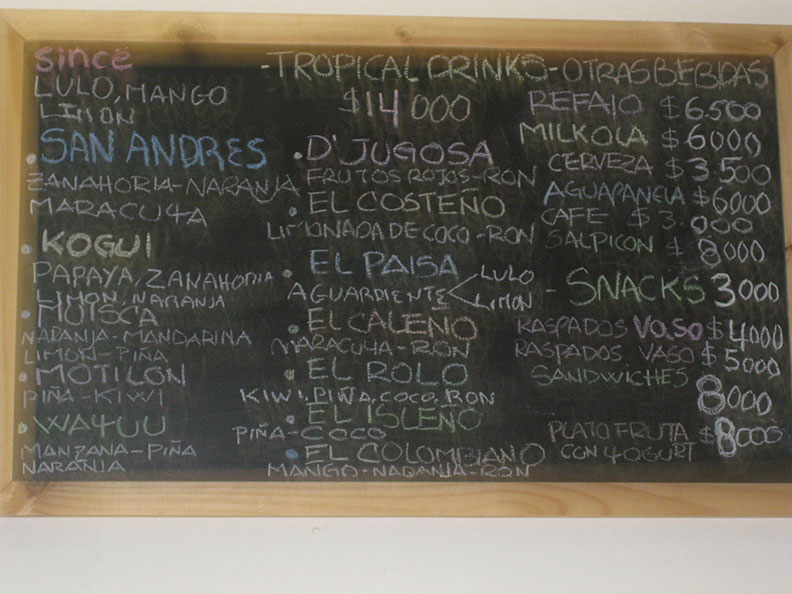 since
LULO, MANGO
LIMON
• SAN ANDRES
ZANAHORIA-NARANJA
MARACUYA
• KOGUI
PAPAYA, ZANAHORIA
LIMON, NARANJA
• MUISCA
NARANJA-MANDARINA
LIMON-PIÑA
• MOTILON
PIÑA-KIWI
• WAYUU
MANZANA-PIÑA
NARANJA
-TROPICAL DRINKS-
$14000
• D'JUGOSA
FRUTOS ROJOS-RON
• EL COSTEÑO
LIMONADA DE COCO-RON
• EL PAISA
AGUARDIENTE < LULO
LIMON
• EL CALEÑO
MARACUYA-RON
• EL ROLO
KIWI, PIÑA, COCO, RON
• EL ISLEÑO
PIÑA-COCO
• EL COLOMBIANO
MANGO-NARANJA-RON
OTRAS BEBIDAS
REFAJO $6.500
MILKOLA $6000
CERVEZA $3.500
AGUAPANELA $6000
CAFE $3.000
SALPICON $8000
- SNACKS 3000
RASPADOS VASO $4000
RASPADOS VASO $5000
SANDWICHES
8000
PLATO FRUTA $8000
CON YOGURT